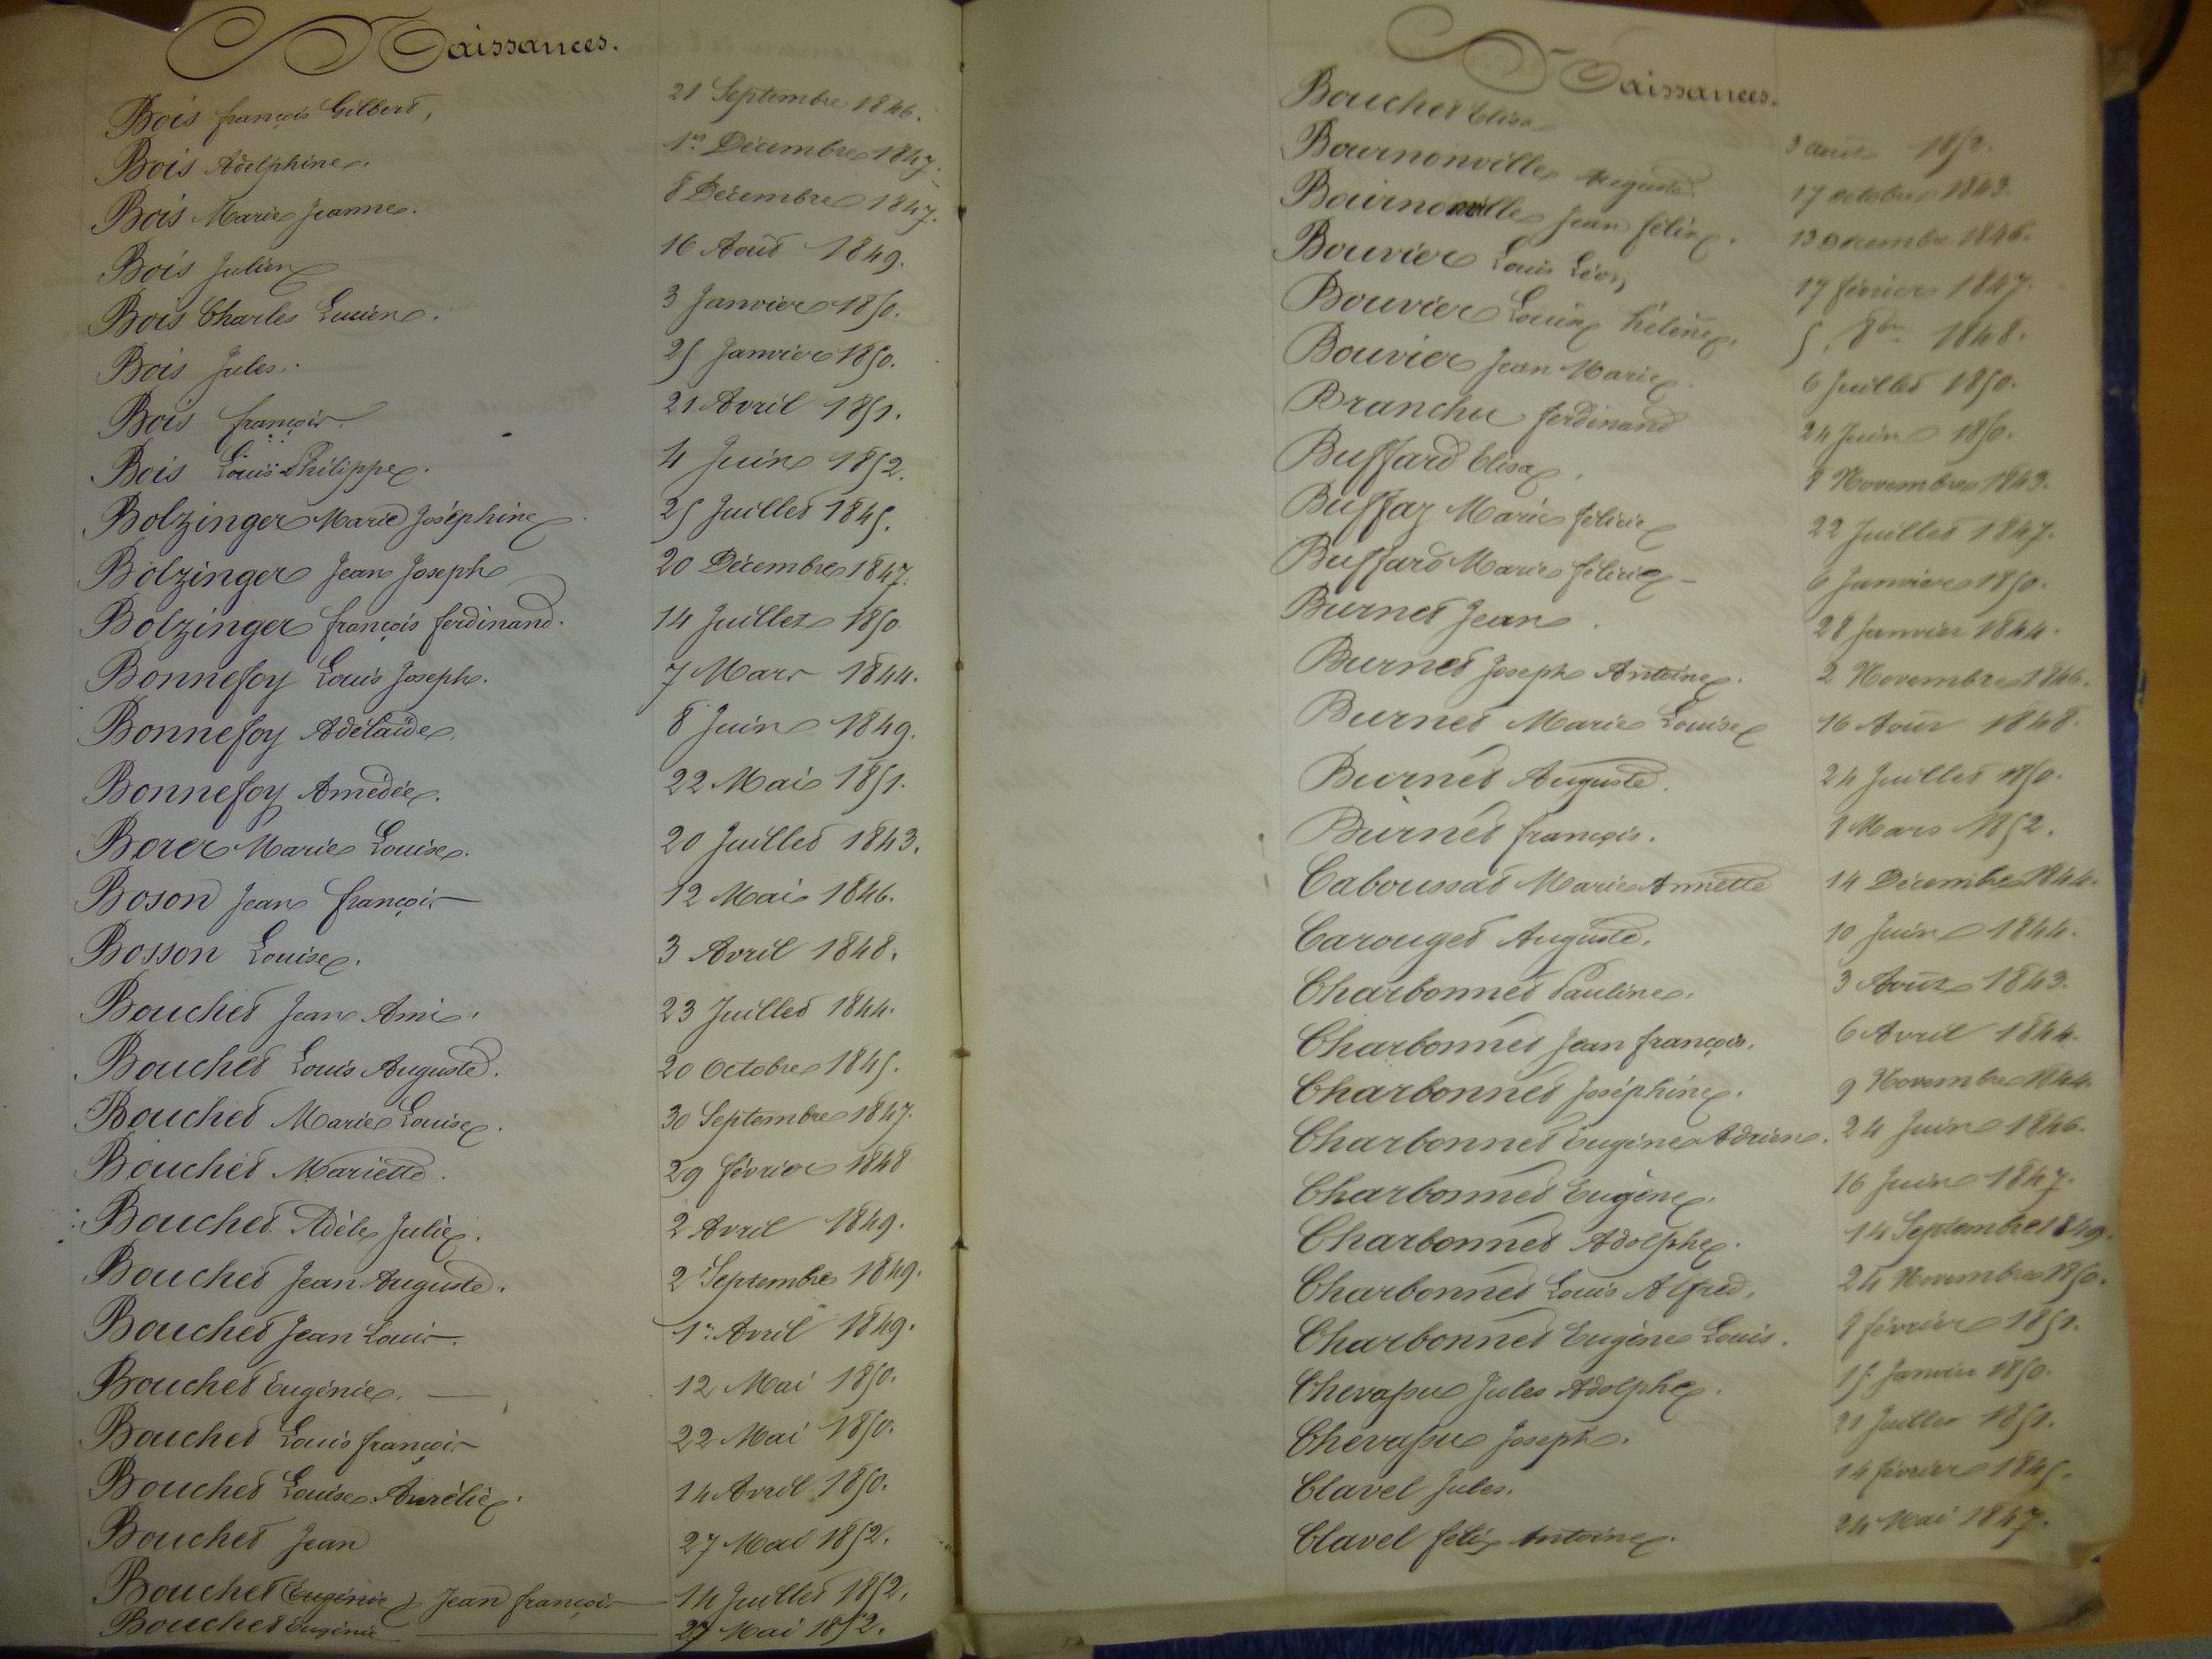 Naissances.
Bois françois Gilbert, 21 Septembre 1846.
Bois Adelphine. 1er Décembre 1847.
Bois Marie Jeanne. 8 Décembre 1847.
Bois Julien 16 Aout 1849.
Bois Charles Lucien. 3 Janvier 1850.
Bois Jules. 25 Janvier 1850.
Bois françois. 21 Avril 1851.
Bois Louis Philippe. 4 Juin 1852.
Bolzinger Marie Joséphine 25 Juillet 1845.
Bolzinger Jean Joseph 20 Décembre 1847.
Bolzinger françois ferdinand. 14 Juillet 1850
Bonnefoy Louis Joseph. 7 Mars 1844.
Bonnefoy Adélaïde. 8 Juin 1849.
Bonnefoy Amédée. 22 Mai 1851.
Borer Marie Louise. 20 Juillet 1843.
Boson Jean françois 12 Mai 1846.
Bosson Louise. 3 Avril 1848.
Bouchet Jean Ami. 23 Juillet 1844.
Bouchet Louis Auguste. 20 Octobre 1845.
Bouchet Marie Louise. 30 Septembre 1847.
Bouchet Mariette. 29 février 1848
Bouchet Adèle Julie. 2 Avril 1849.
Bouchet Jean Auguste. 2 Septembre 1849.
Bouchet Jean Louis. 1er Avril 1849.
Bouchet Eugénie. 12 Mai 1850.
Bouchet Louis françois 22 Mai 1850.
Bouchet Louise Aurélie. 14 Avril 1850.
Bouchet Jean 27 Mai 1852.
Bouchet (Eugénie) Jean françois 14 Juillet 1852.
Bouchet Eugénie 27 Mai 1852.
Naissances.
Bouchet Elisa 3 aout 1852.
Bournonville Auguste 17 octobre 1843.
Bournonville Jean félix. 13 Décembre 1846.
Bouvier Louis Léon, 17 février 1847.
Bouvier Louise hélène. 5. 8bre 1848.
Bouvier Jean Marie. 6 Juillet 1850.
Branchu ferdinand 24 Juin 1850.
Buffard Elisa. 8 Novembre 1843.
Buffaz Marie félicie 22 Juillet 1847.
Buffard Marie félicie 6 Janvier 1850.
Burnet Jean. 28 Janvier 1844.
Burnet Joseph Antoine. 2 Novembre 1846.
Burnet Marie Louise 16 Aout 1848.
Burnet Auguste. 24 Juillet 1850.
Burnet françois. 8 Mars 1852.
Caboussat Marie Annette 14 Décembre 1844.
Carouget Auguste. 10 Juin 1844.
Charbonnet Pauline. 3 Aout 1843.
Charbonnet Jean françois. 6 Avril 1844.
Charbonnet Joséphine. 9 Novembre 1844.
Charbonnet Eugène Adrien. 24 Juin 1846.
Charbonnet Eugène. 16 Juin 1847.
Charbonnet Adolphe. 14 Septembre 1849.
Charbonnet Louis Alfred. 24 Novembre 1850.
Charbonnet Eugène Louis. 8 février 1851.
Chevassu Jules Adolphe. 15 Janvier 1850.
Chevassu Joseph. 21 Juillet 1851.
Clavel Jules. 14 février 1845.
Clavel félix Antoine. 24 Mai 1847.